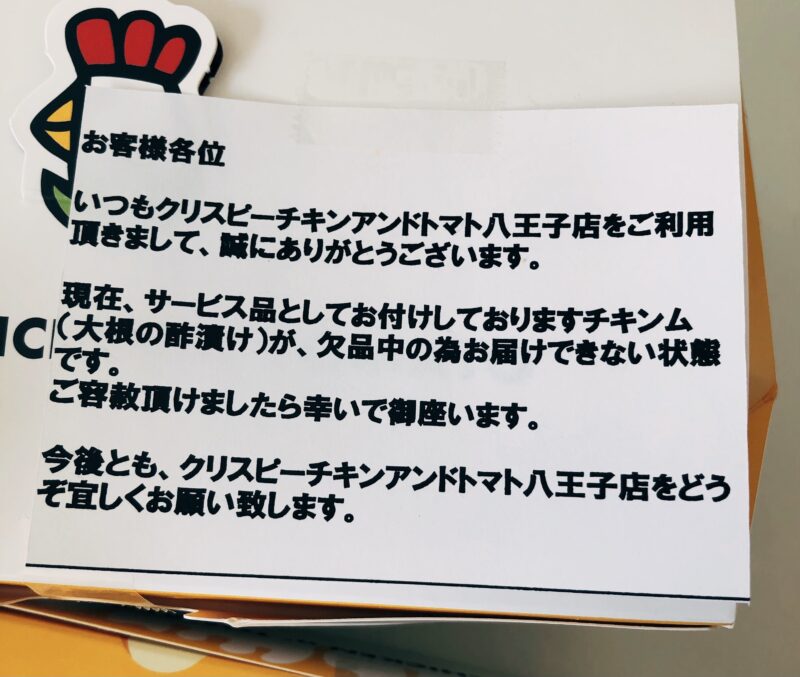 お客様各位
いつもクリスピーチキンアンドトマト八王子店をご利用
頂きまして、誠にありがとうございます。
現在、サービス品としてお付けしておりますチキンム
(大根の酢漬け)が、欠品中の為お届けできない状態
です。
ご容赦頂けましたら幸いで御座います。
今後とも、クリスピーチキンアンドトマト八王子店をどう
ぞ宜しくお願い致します。
IC